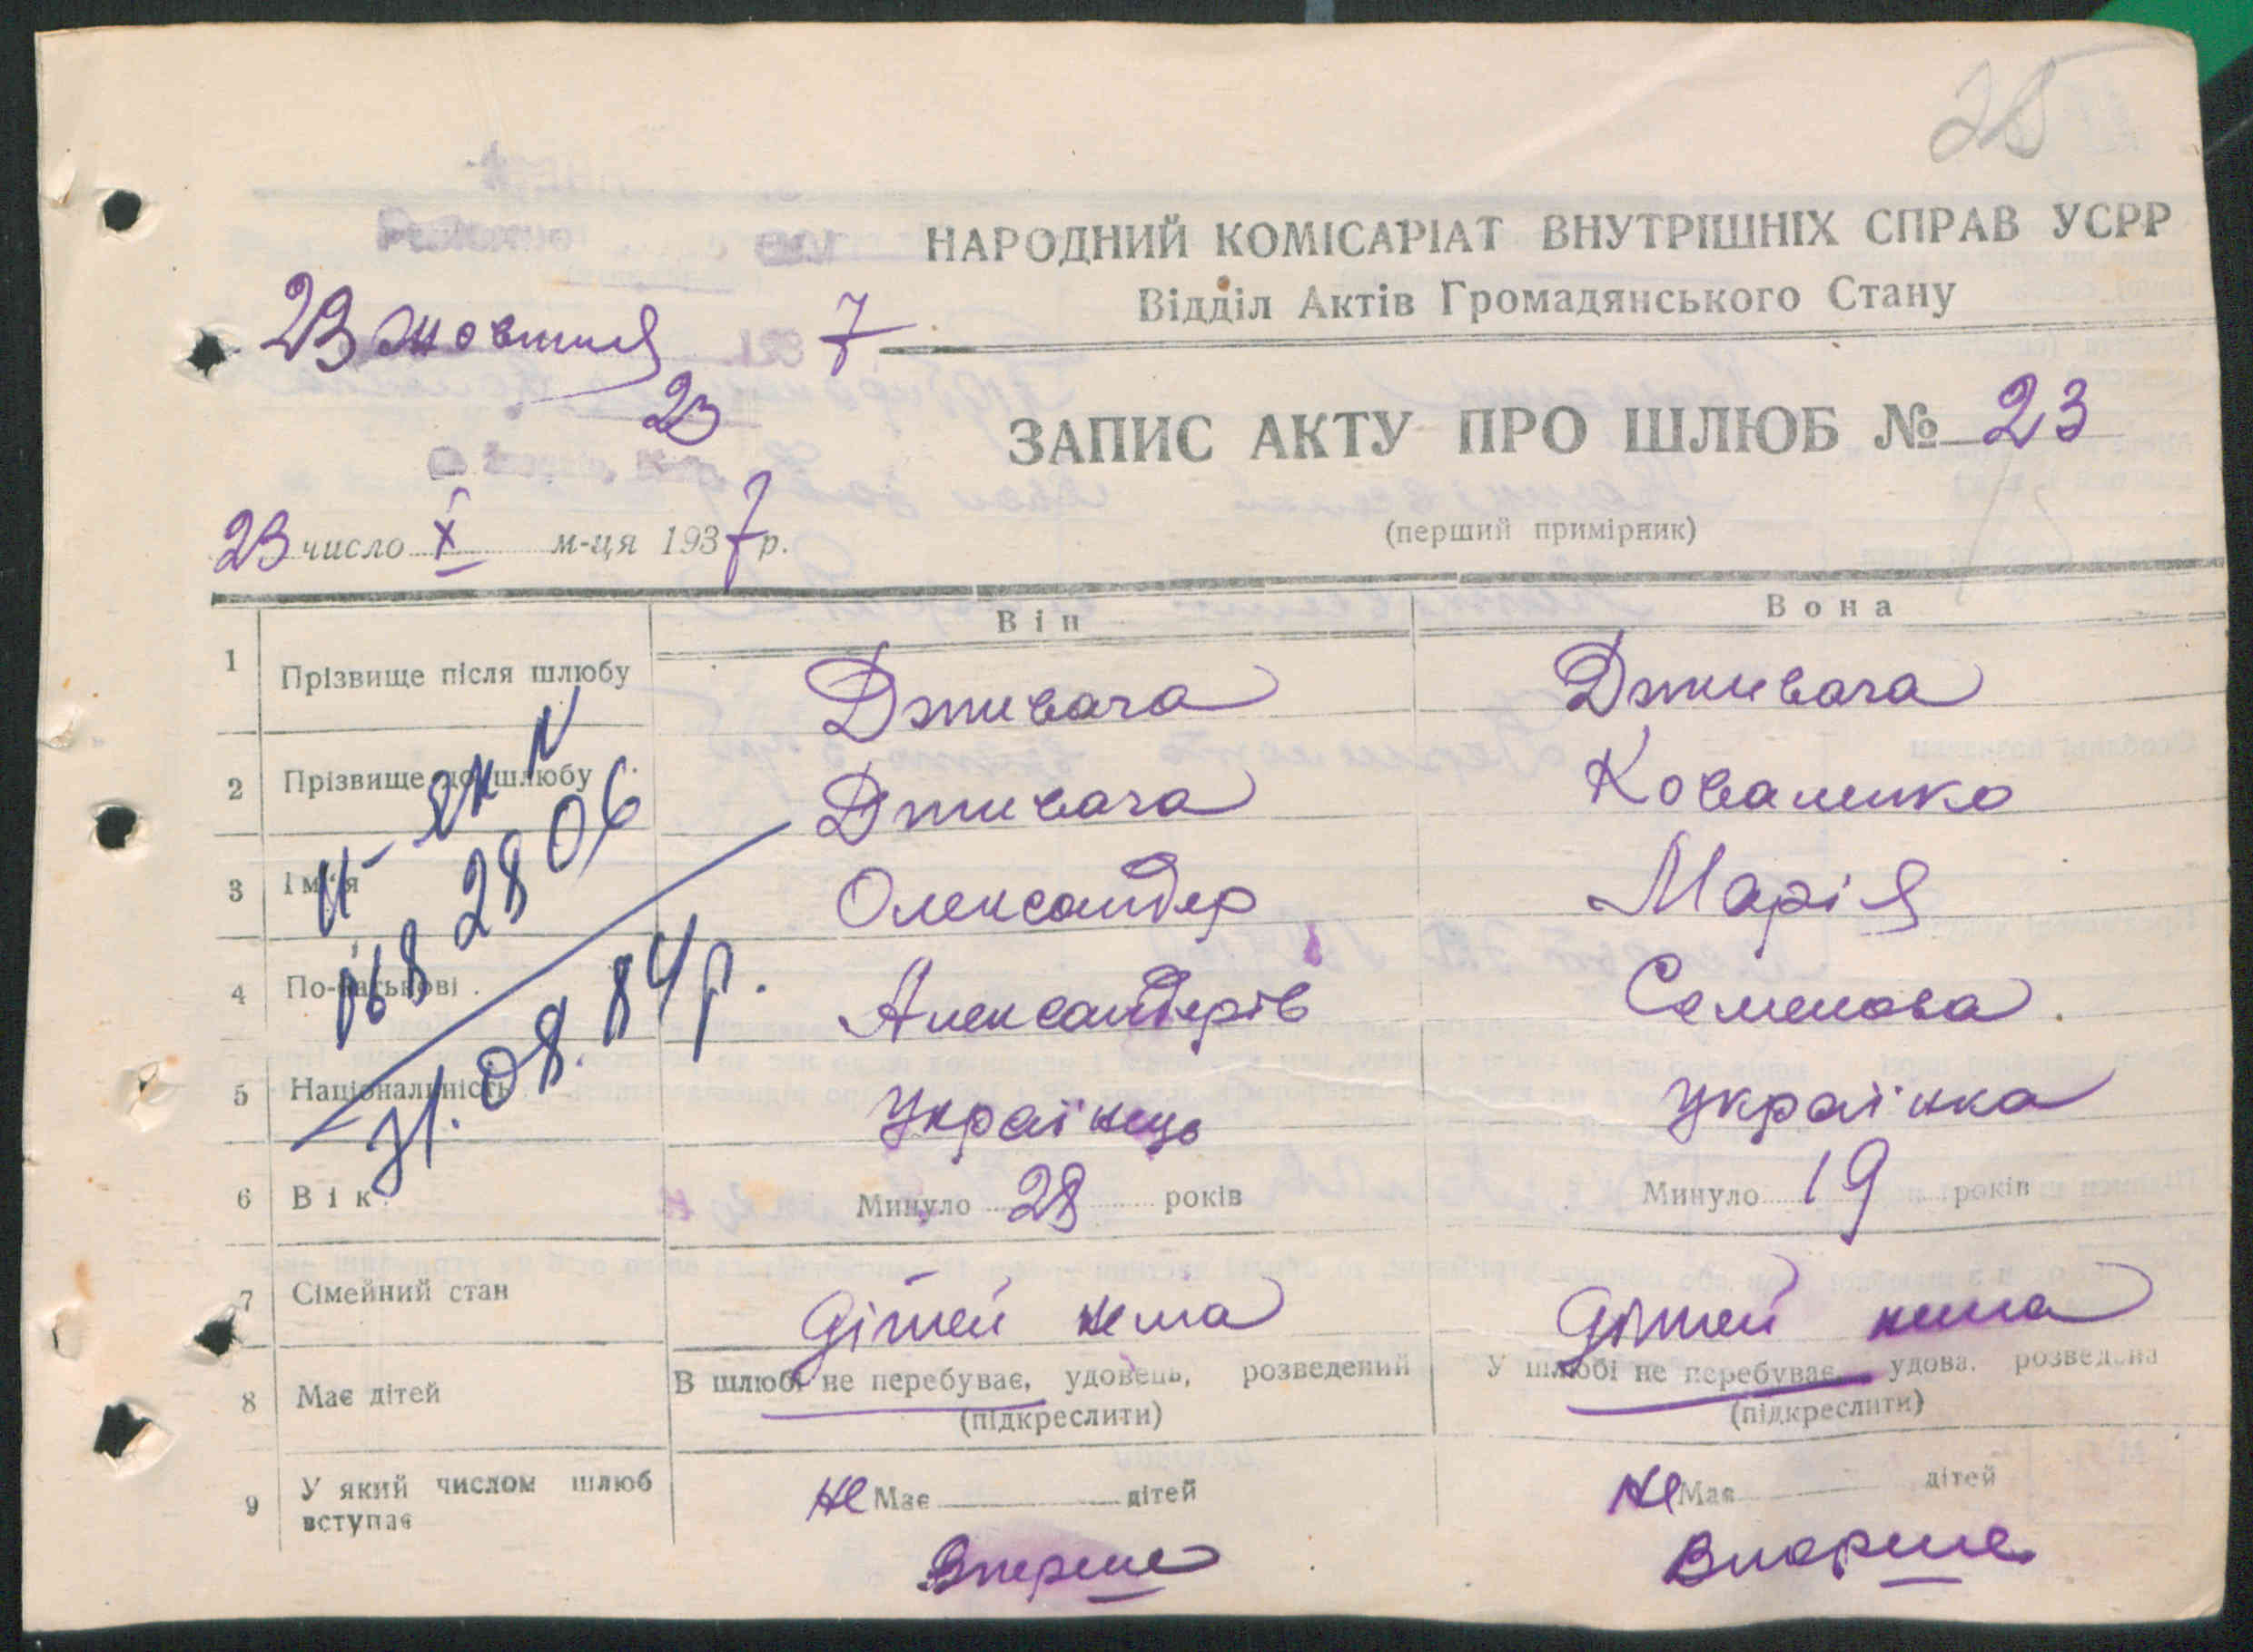 28
НАРОДНИЙ КОМІСАРІАТ ВНУТРІШНІХ СПРАВ УСРР
Відділ Актів Громадянського Стану
23 жовтня 7
23
ЗАПИС АКТУ ПРО ШЛЮБ № 23
(перший примірник)
23 число X м-ця 1937 р.
Він Вона
1 Прізвище після шлюбу Дживага Дживага
2 Прізвище до шлюбу Дживага Коваленко
3 Ім'я Олександер Марія
4 По-батькові Александерів Семенова.
5 Національність Українець Українка
6 Вік Минуло 28 років Минуло 19 років
7 Сімейний стан Дітей нема Дітей нема
В шлюбі не перебуває, удовець, розведений У шлюбі не перебуває, удова, розведена
8 Має дітей (підкреслити) (підкреслити)
9 У який числом шлюб вступає не Має дітей не Має дітей
Вперше Вперше
068 2806
31.08.84р.